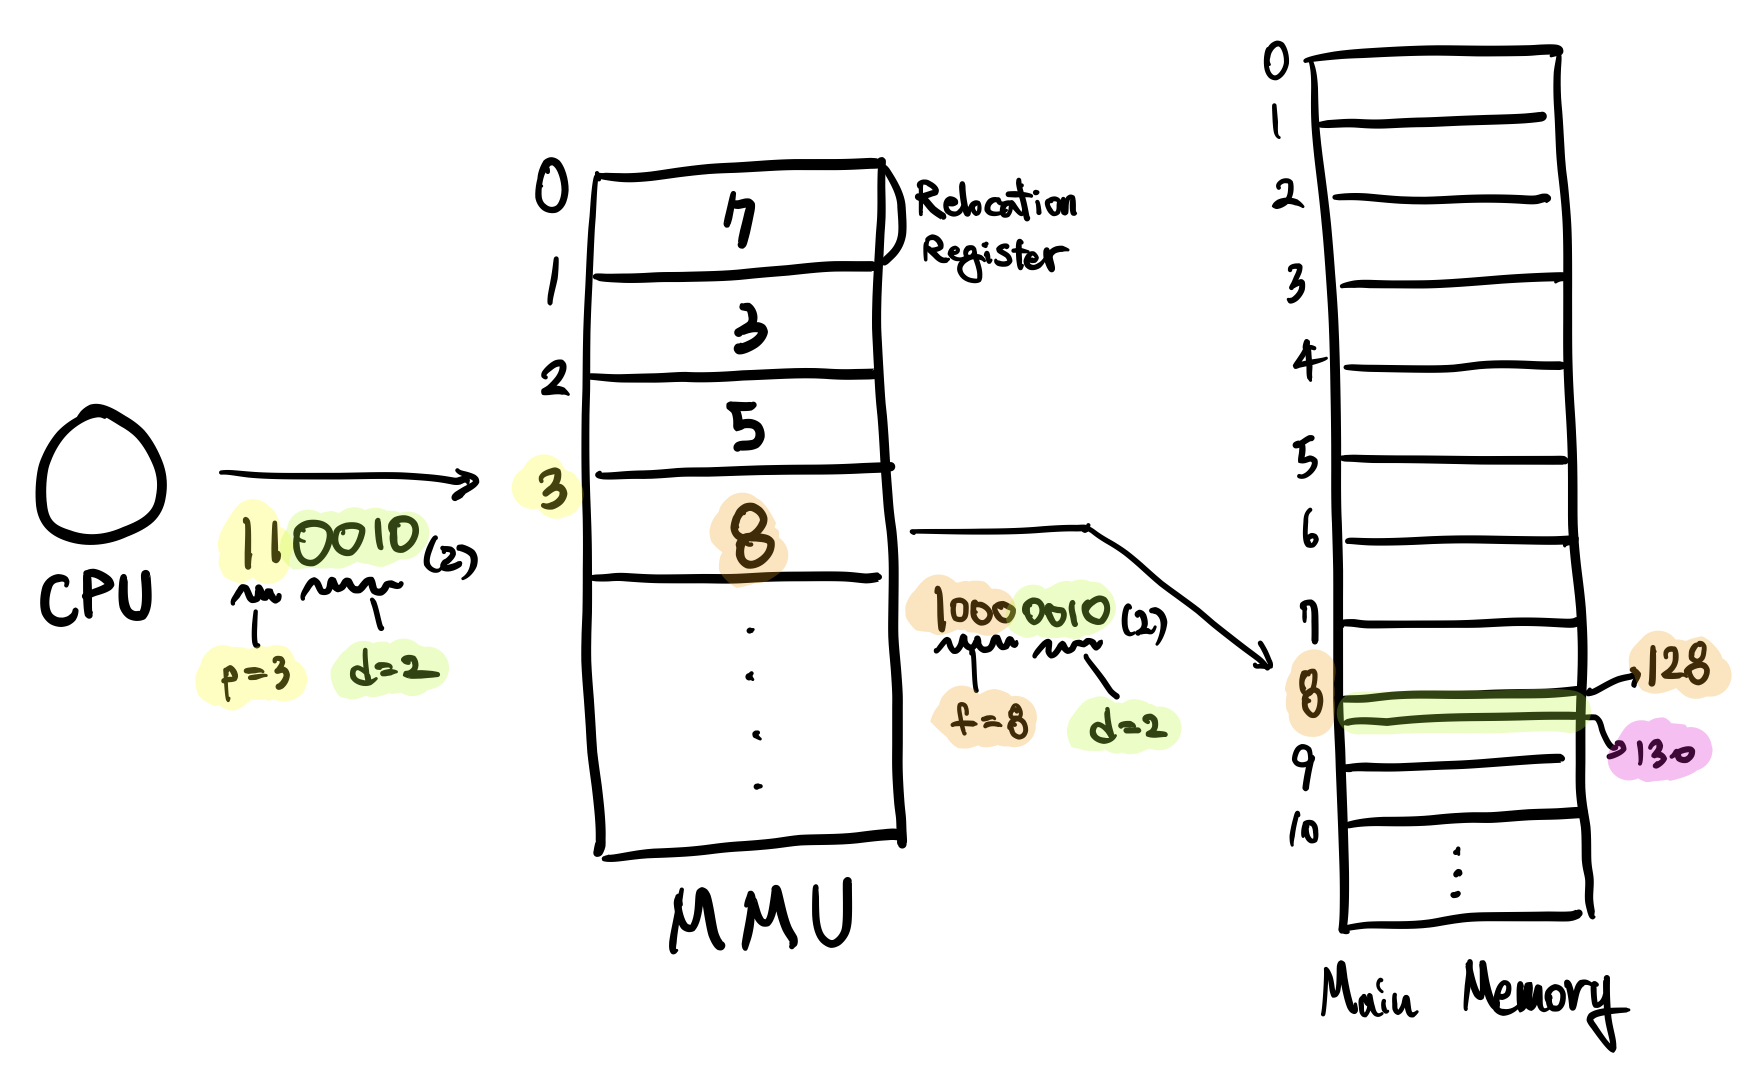 CPU
110010(2)
p=3
d=2
0
1
2
3
7
3
5
8
Relocation
Register
MMU
10000010(2)
f=8
d=2
0
1
2
3
4
5
6
7
8
9
10
128
130
Main Memory